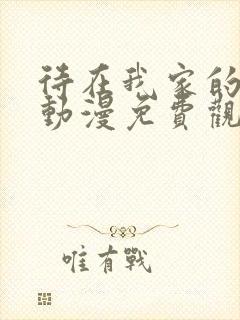 待在我家的
動漫免費觀
唯有戰